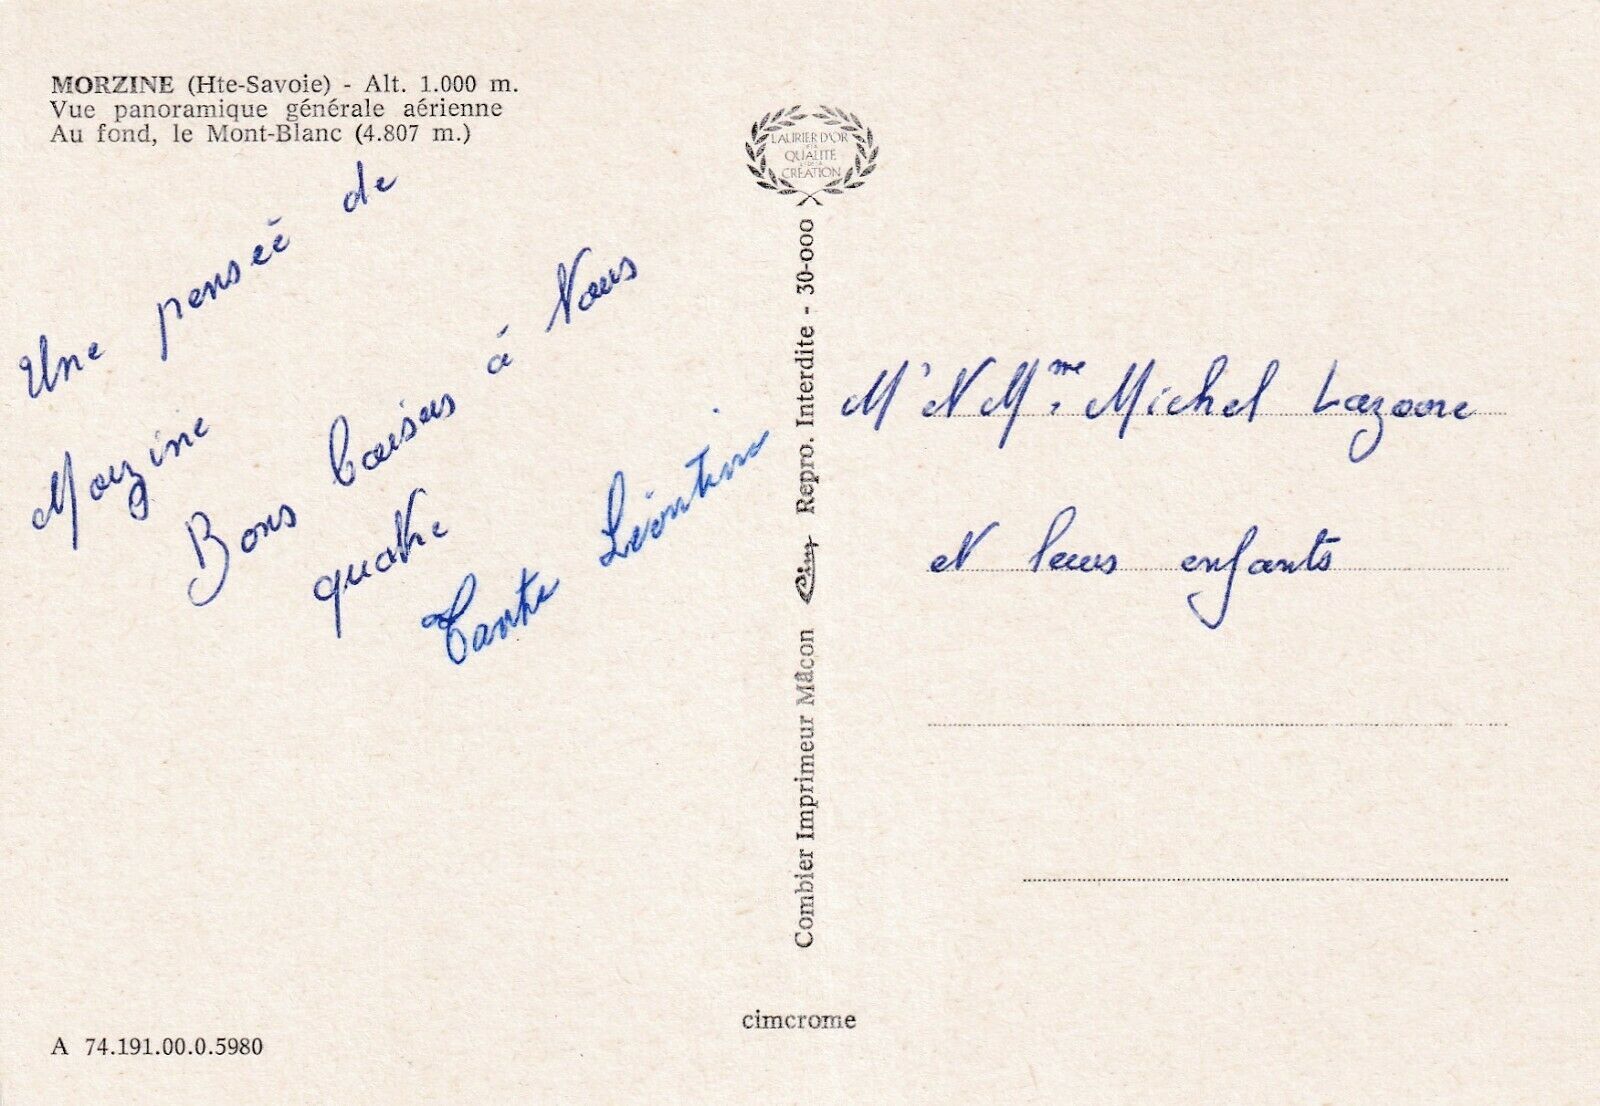 MORZINE (Hte-Savoie) - Alt. 1.000 m.
Vue panoramique générale aérienne
Au fond, le Mont-Blanc (4.807 m.)
Une pensée de
Morzine
Bons baisers à Vous
quatre
Tante Léontine
LAURIER D'OR
QUALITÉ
CRÉATION
Combier Imprimeur Mâcon Cim Repro. Interdite - 30-000
Mr et Mme Michel
et leurs enfants
cimcrome
A 74.191.00.0.5980